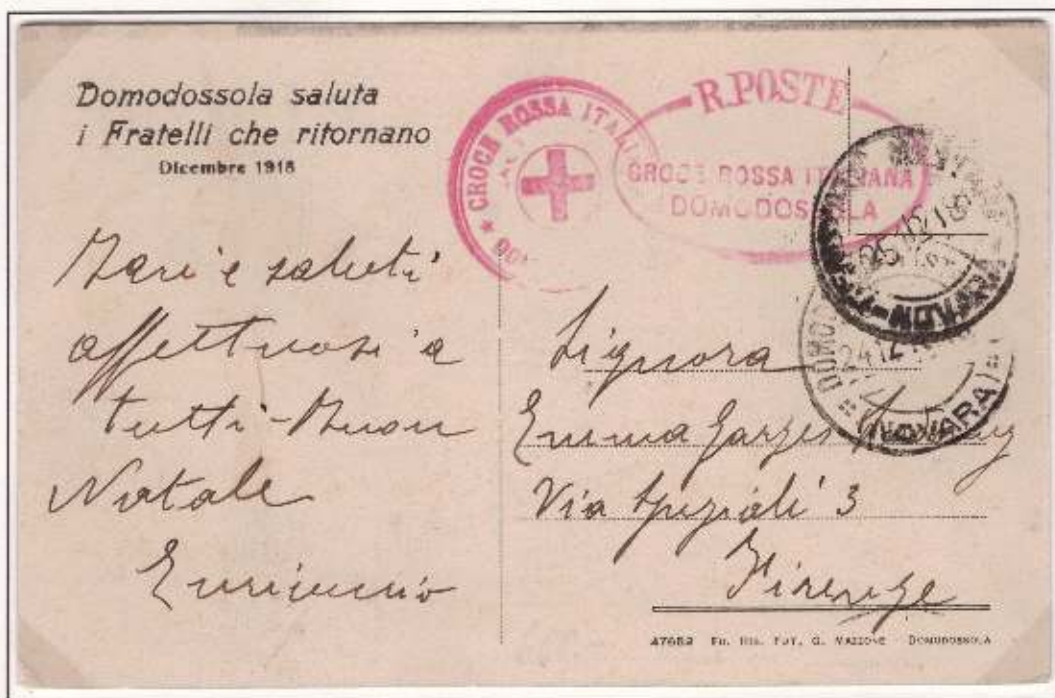 Domodossola saluta
i Fratelli che ritornano
Dicembre 1918
CROCE ROSSA ITALI
R.POSTE
CROCE ROSSA ITALIANA
DOMODOSSOLA
25.12.18
DOMO
24 12
(NOVARA)
Baci e saluti
affettuosi a
tutti - Buon
Natale
Signora
Emma
Via Speziali 3
Firenze
47682 G. MAZZONE DOMODOSSOLA